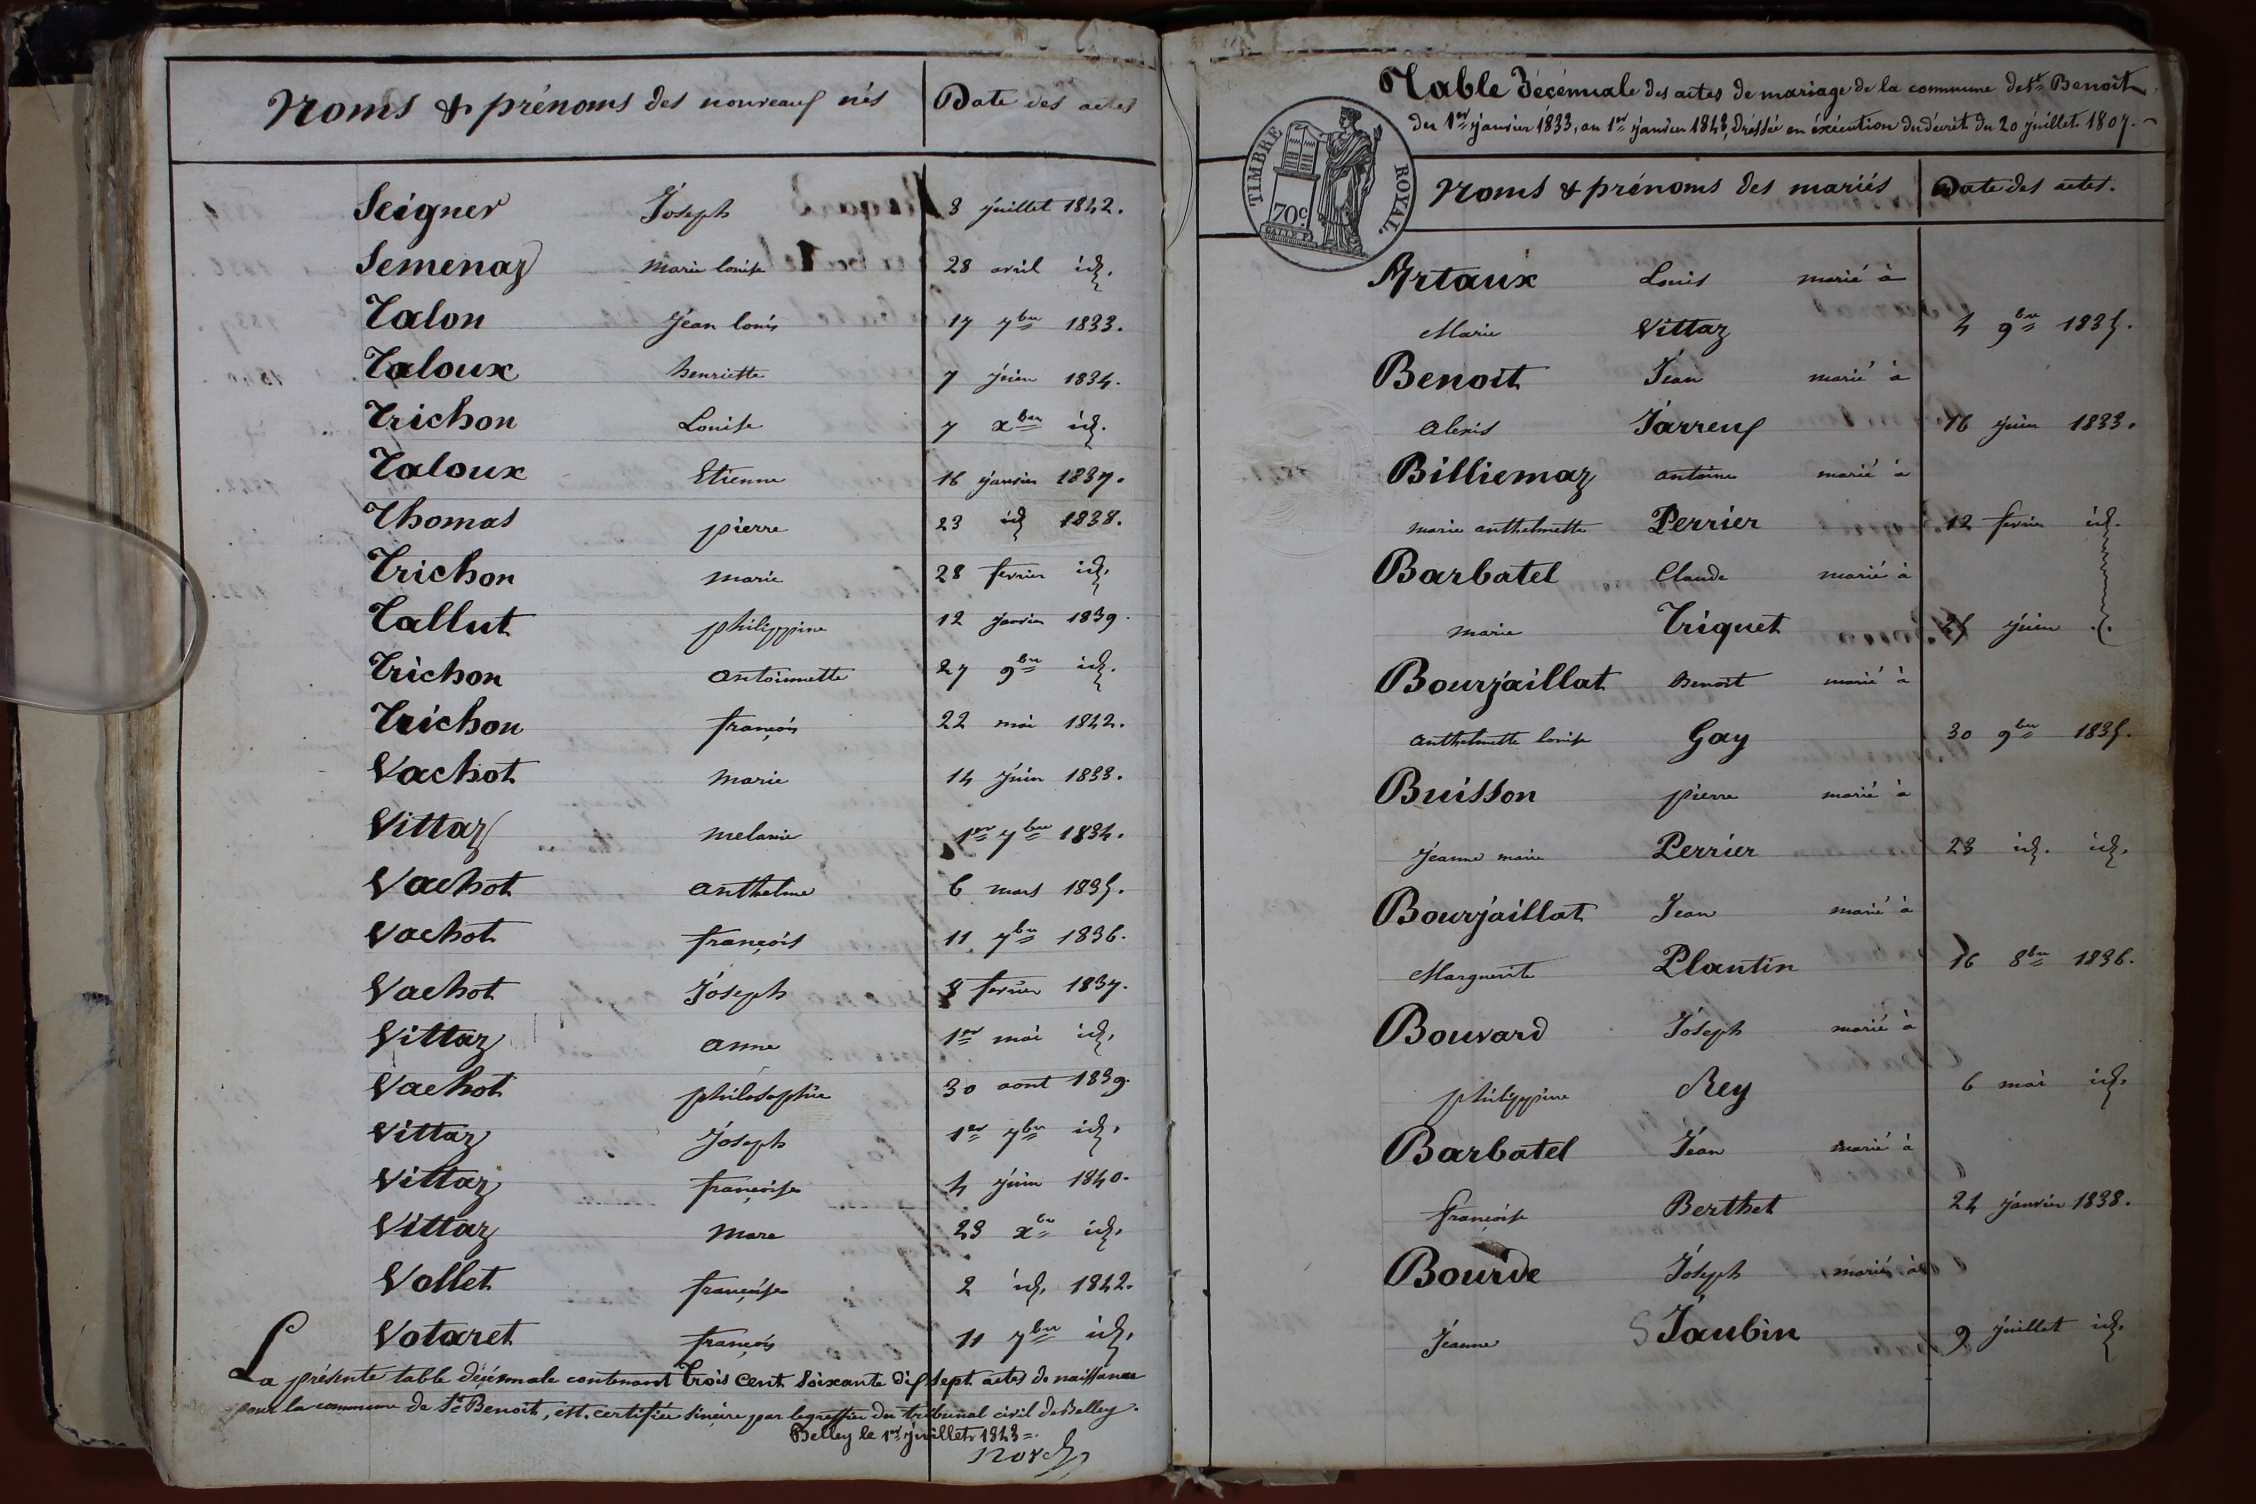 Noms & prénoms des nouveaux nés Date des actes
Seigner Joseph 8 juillet 1842.
Semenaz marie louise 28 avril id.
Talon Jean louis 17 7bre 1833.
Taloux henriette 7 juin 1834.
Trichon Louise 7 xbre id.
Taloux Etienne 16 janvier 1837.
Thomas pierre 23 id 1838.
Trichon marie 28 fevrier id.
Tallut philippine 12 janvier 1839.
Trichon antoinnette 27 9bre id.
Trichon françois 22 mai 1842.
Vachot marie 14 juin 1833.
Vittaz melanie 1er 7bre 1834.
Vachot anthelme 6 mars 1835.
Vachot françois 11 7bre 1836.
Vachot Joseph 8 fevrier 1837.
Vittaz anne 1er mai id.
Vachot philosophie 30 aout 1839.
Vittaz Joseph 1er 7bre id.
Vittaz françoise 4 juin 1840.
Vittaz marc 23 xbre id.
Vollet françoise 2 id. 1842.
Votaret françois 11 7bre id.
La présente table décennale contenant trois cent soixante dix sept actes de naissance
pour la commune de St Benoit, est certifiée sincère par le greffier du tribunal civil de Belley.
Belley le 1er juillet 1843=.
Table décénnale des actes de mariage de la commune de St Benoit
du 1er janvier 1833, au 1er janvier 1843, dréssée en éxécution du décrit du 20 juillet 1807.
TIMBRE ROYAL.
70c
Noms & prénoms des mariés Date des actes.
Artaux Louis marié à
Marie Vittaz 4 9bre 1835.
Benoit Jean marié à
alexis Jarreux 16 juin 1833.
Billiemaz antoine marié à
marie anthelmette Perrier 12 fevrier id.
Barbatel Claude marié à
marie Triquet 25 juin
Bourjaillat Benoit marié à
anthelmette louise Gay 30 9bre 1835.
Buisson pierre marié à
Jeanne marie Perrier 23 id. id.
Bourjaillat Jean marié à
Marguerite Plantin 16 8bre 1836.
Bouvard Joseph marié à
philippine Rey 6 mai id.
Barbatel Jean marié à
françoise Berthet 24 janvier 1838.
Bourde Joseph marié à
Jeanne S Jaubin 9 juillet id.